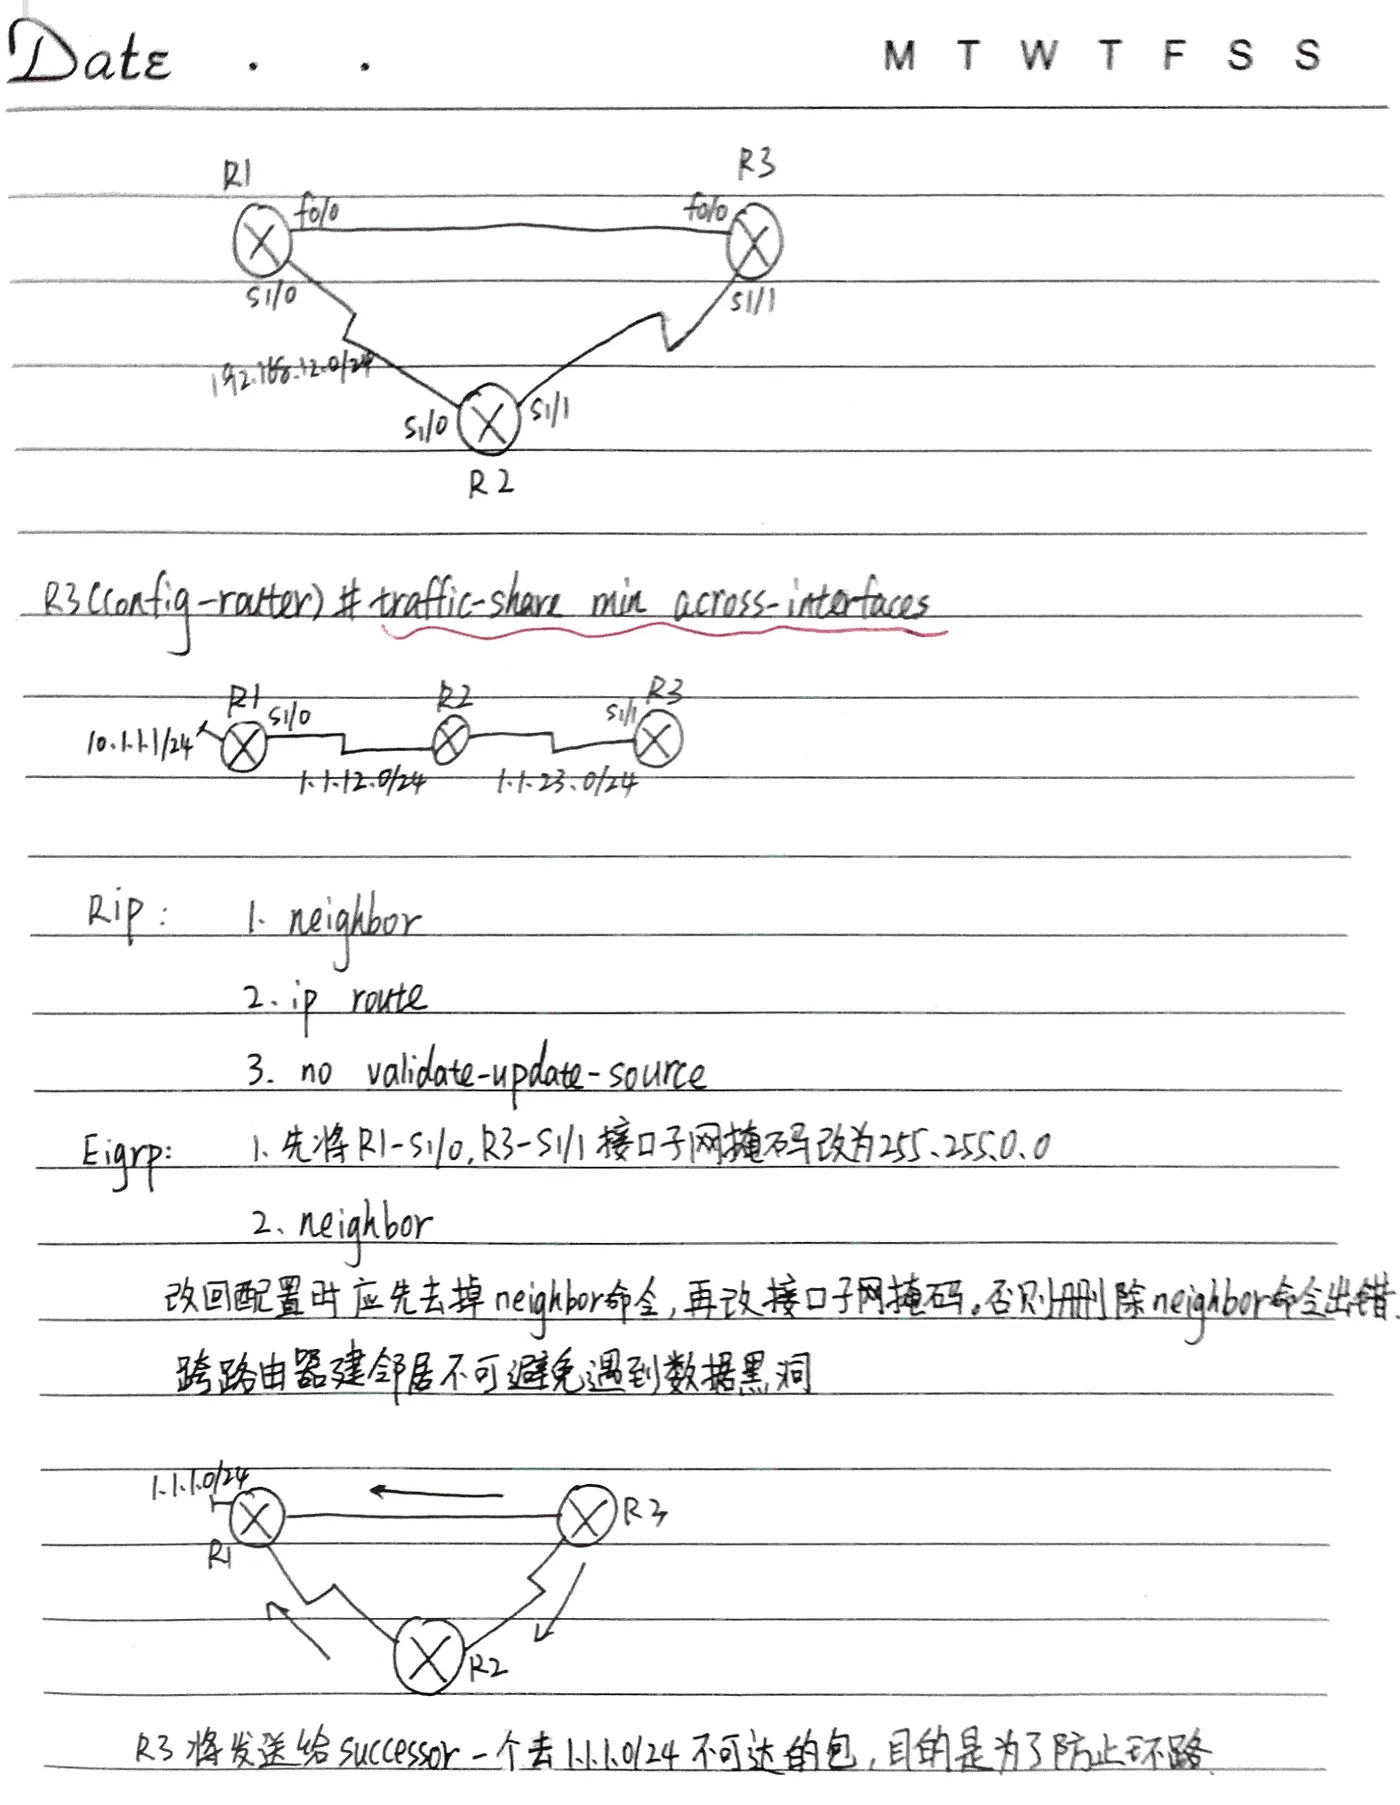 Date . . M T W T F S S
R1 R3
f0/0 f0/0
S1/0 S1/1
192.168.12.0/24
S1/0 S1/1
R2
R3(config-router)# traffic-share min across-interfaces
R1 R2 R3
S1/0 S1/1
10.1.1.1/24
1.1.12.0/24 1.1.23.0/24
Rip: 1. neighbor
2. ip route
3. no validate-update-source
Eigrp: 1. 先将R1-S1/0,R3-S1/1接口子网掩码改为255.255.0.0
2. neighbor
改回配置时应先去掉neighbor命令,再改接口子网掩码。否则删除neighbor命令出错.
跨路由器建邻居不可避免遇到数据黑洞
1.1.1.0/24
R3
R1
R2
R3将发送给successor一个去1.1.1.0/24不可达的包,目的是为了防止环路.